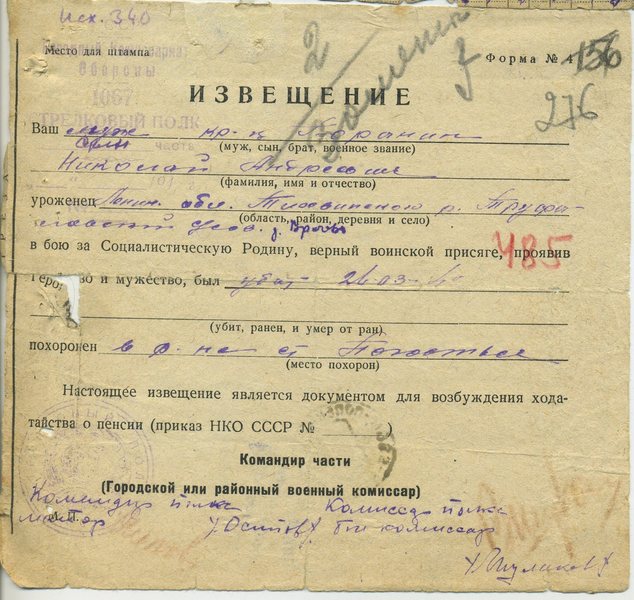 исх. 340
Место для штампа
Народный Комиссариат
Обороны
1067
СТРЕЛКОВЫЙ ПОЛК
часть
Форма № 4
156
2
7
276
ИЗВЕЩЕНИЕ
Ваш муж кр-ц
сын
(муж, сын, брат, военное звание)
Николай Андреевич
(фамилия, имя и отчество)
уроженец Ленин. обл. Тихвинского р.
(область, район, деревня и село)
в бою за Социалистическую Родину, верный воинской присяге, проявив
485
геро во и мужество, был убит 26-03-4
(убит, ранен, и умер от ран)
похоронен в р-не ст Погостье
(место похорон)
Настоящее извещение является документом для возбуждения хода-
тайства о пенсии (приказ НКО СССР № )
Командир части
(Городской или районный военный комиссар)
Командир полка Комиссар полка
майор /Осипов/ бат комиссар
М.П.